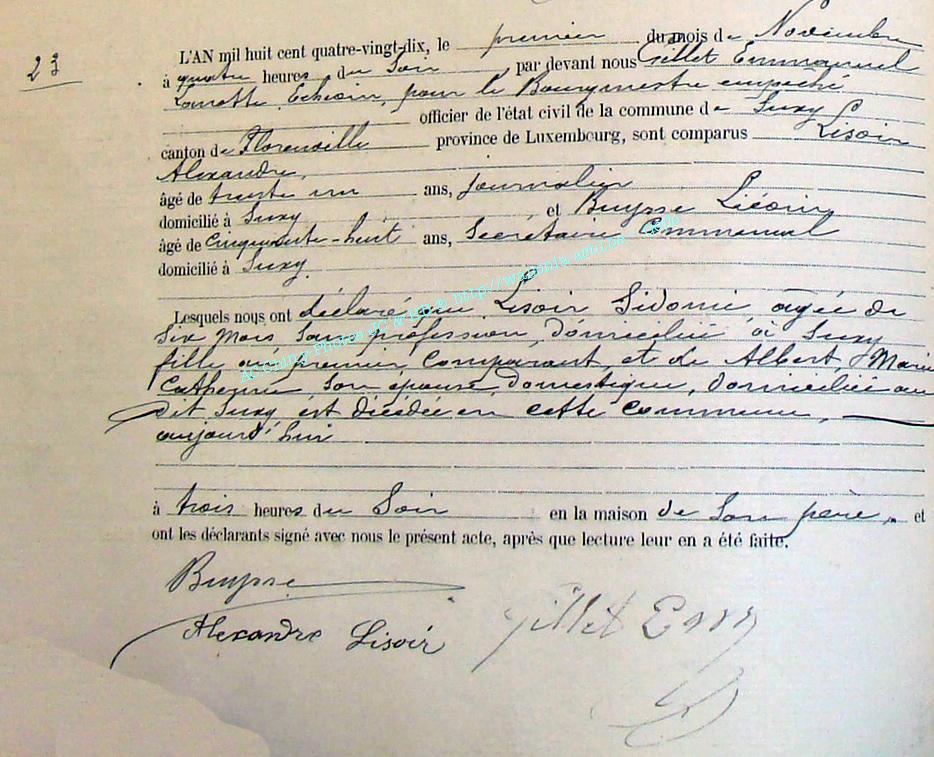 23
L'AN mil huit cent quatre-vingt-dix, le premier du mois de Novembre
à quatre heures du Soir par devant nous Gillet Emmanuel
Lamotte Echevin, pour le Bourgmestre empêché
officier de l'état civil de la commune de Suxy
canton de Florenville province de Luxembourg, sont comparus Lisoir
Alexandre,
âgé de trente un ans, journalier
domicilié à Suxy et Buysse
âgé de Cinquante-huit ans, Secrétaire Communal
domicilié à Suxy.
Lesquels nous ont déclaré que Lisoir Sidonie agée de
Six mois, Sans profession, domiciliée à Suxy
fille du premier Comparant et de Albert, Marie
Catherine Son épouse, Domestique, domiciliée au
dit Suxy est décédée en cette Commune,
aujourd'hui
à trois heures du Soir en la maison de Son père, et
ont les déclarants signé avec nous le présent acte, après que lecture leur en a été faite.
Buysse
Alexandre Lisoir
Gillet Emm